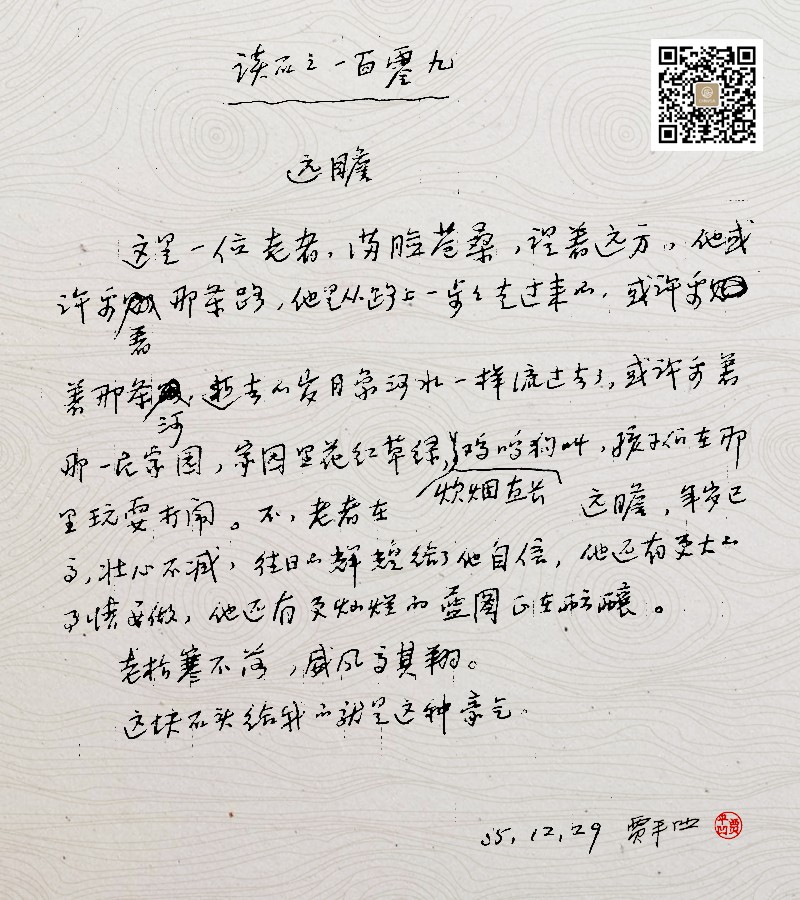 读石之一百零九
远瞻
这是一位老者，满脸苍桑，望着远方。他或
许看着那条路，他是从路上一步步走过来的，或许看
着那条河，逝去的岁月象河水一样流过去了，或许看着
那一片家园，家园里花红草绿，炊烟直长，鸡鸣狗叫，孩子们在那
里玩耍打闹。不，老者在远瞻，年岁已
高，壮心不减，往日的辉煌给了他自信，他还有更大的
事情要做，他还有更灿烂的蓝图正在酝酿。
老松寒不落，威风高其翔。
这块石头给我的就是这种豪气。
55，12，29 贾平凹
平凹 贾